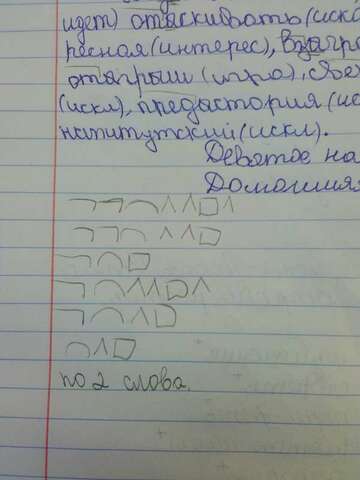 идет) отыскивать (иска
ресная (интерес), взыгра
отыгрыш (игра), свое
(искл), предыстория (ис
(искл).
Девятое на
Домашняя
по 2 слова.